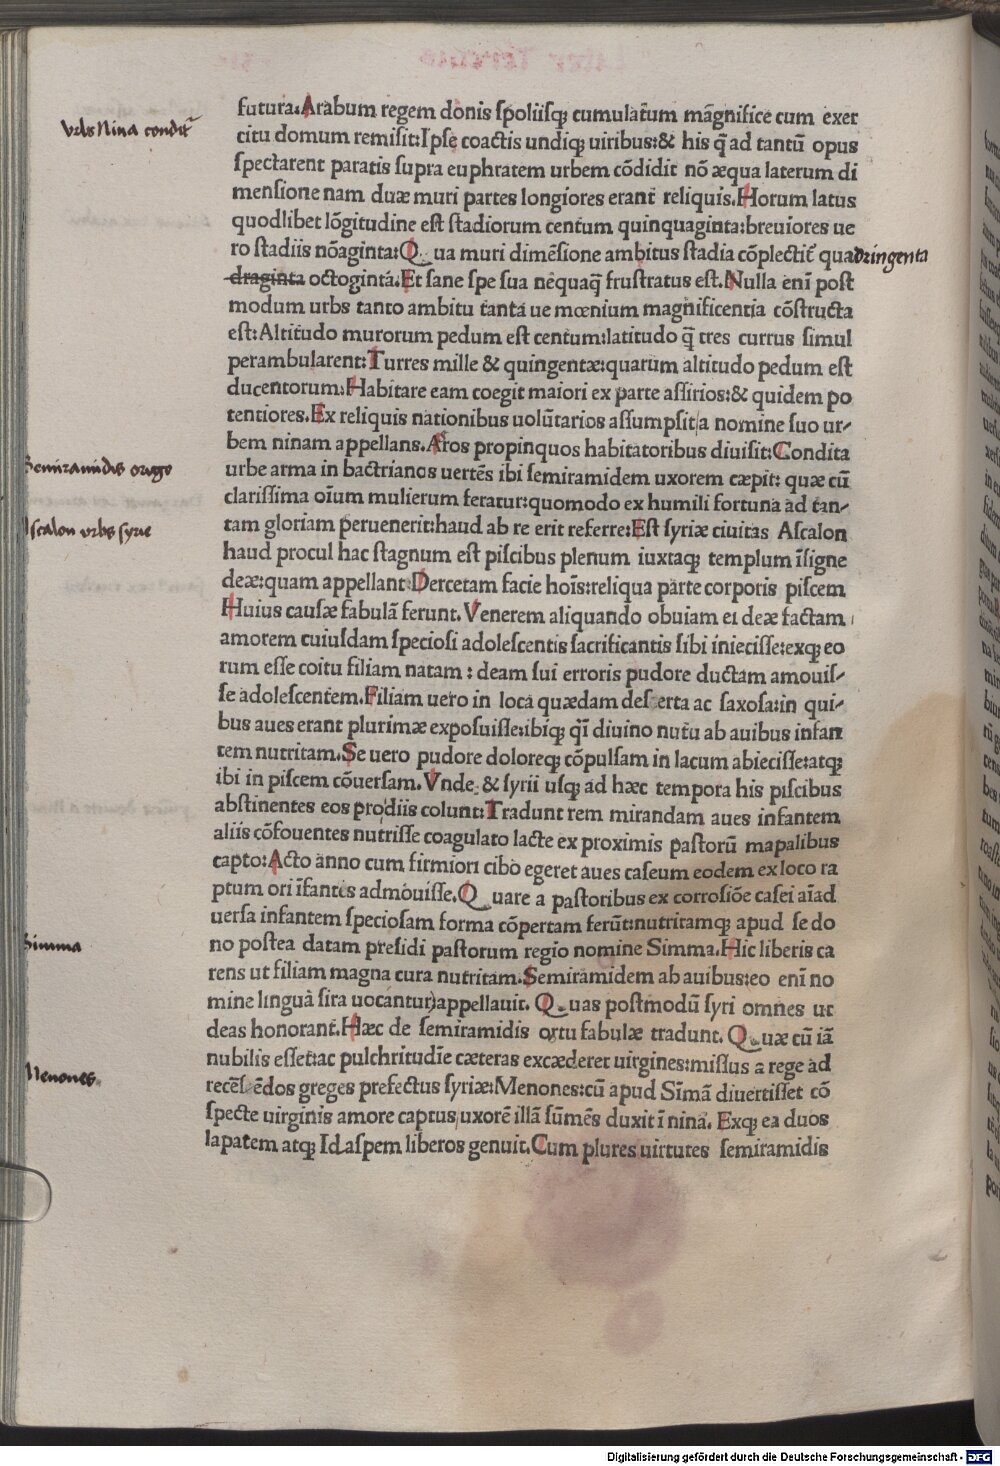 Vrbs Nina condit̄
futura:Arabum regem donis ſpoliiſq; cumulatum māgnifice cum exer
citu domum remiſit:Ipſe coactis undiq; uiribus:& his q̄ ad tantū opus
ſpectarent paratis ſupra euphratem urbem cōdidit nō æqua laterum di
menſione nam duæ muri partes longiores erant reliquis.Horum latus
quodlibet lōgitudine eſt ſtadiorum centum quinquaginta:breuiores ue
ro ſtadiis nōaginta:Q ua muri dimēſione ambitus ſtadia cōplectit̄ quadringenta
draginta octogintá.Et ſane ſpe ſua nēquaq̄ fruſtratus eſt.Nulla enī poſt
modum urbs tanto ambitu tanta ue mœnium magnificentia cōſtructa
eſt:Altitudo murorum pedum eſt centum:latitudo q̄ tres currus ſimul
perambularent:Turres mille & quingentæ:quarum altitudo pedum eſt
ducentorum:Habitare eam coegit maiori ex parte aſſirios:& quidem po
tentiores.Ex reliquis nationibus uolūtarios aſſumpſit a nomine ſuo ur-
bem ninam appellans.Agros propinquos habitatoribus diuiſit:Condita
Semiramidis origo
urbe arma in bactrianos uertēs ibi ſemiramidem uxorem cæpit: quæ cū
clariſſima oīum mulierum feratur:quomodo ex humili fortuna ad tan-
Aſcalon vrbs ſyrie
tam gloriam peruenerit:haud ab re erit referre:Eſt ſyriæ ciuitas Aſcalon
haud procul hac ſtagnum eſt piſcibus plenum iuxtaq; templum īſigne
deæ:quam appellant:Dercetam facie hoīs:reliqua parte corporis piſcem
Huius cauſæ fabulā ferunt.Venerem aliquando obuiam ei deæ factam
amorem cuiuſdam ſpecioſi adoleſcentis ſacrificantis ſibi inieciſſe:exq; eo
rum eſſe coitu filiam natam : deam ſui erroris pudore ductam amouiſ-
ſe adoleſcentem.Filiam uero in loca quædam deſerta ac ſaxoſa:in qui-
bus aues erant plurimæ expoſuiſſe:ibiq; qī diuino nutu ab auibus infan
tem nutritam.Se uero pudore doloreq; cōpulſam in lacum abieciſſe:atq;
ibi in piſcem cōuerſam.Vnde & ſyrii uſq; ad hæc tempora his piſcibus
abſtinentes eos pro diis colunt:Tradunt rem mirandam aues infantem
aliis cōfouentes nutriſſe coagulato lacte ex proximis paſtorū mapalibus
capto:Acto anno cum firmiori cibo egeret aues caſeum eodem ex loco ra
ptum ori īfantis admouiſſe.Q uare a paſtoribus ex corroſiōe caſei aīad
uerſa infantem ſpecioſam forma cōpertam ferūt:nutritamq; apud ſe do
Simma
no poſtea datam preſidi paſtorum regio nomine Simma.Hic liberis ca
rens ut filiam magna cura nutritam.Semiramidem ab auibus:eo enī no
mine linguā ſira uocantur)appellauit. Q uas poſtmodū ſyri omnes ut
deas honorant.Hæc de ſemiramidis ortu fabulæ tradunt. Q uæ cū iā
nubilis eſſet:ac pulchritudīe cæteras excæderet uirgines:miſſus a rege ad
Menones
recēſēdos greges prefectus ſyriæ:Menones:cū apud Sīmā diuertiſſet cō
ſpecte uirginis amore captus uxorē illā ſūmēs duxit ī nina. Exq; ea duos
lapatem atq; Idaſpem liberos genuit.Cum plures uirtutes ſemiramidis
Digitalisierung gefördert durch die Deutsche Forschungsgemeinschaft - DFG